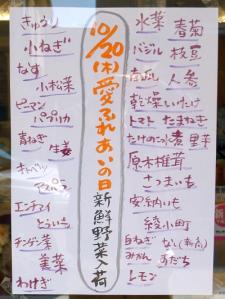 10/20(木)愛ふれあいの日
新鮮野菜入荷
水菜 春菊
バジル 枝豆
人参
乾燥しいたけ
トマト たまねぎ
たけのこ煮 里芋
原木椎茸
さつまいも
安納いも
綾小町
白ねぎ なし(新高)
みかん すだち
レモン
きゅうり
小ねぎ
なす
小松菜
ピーマン
パプリカ
青ねぎ 生姜
キャベツ
エンサイ
とういち
チンゲン菜
葉菜
わけぎ